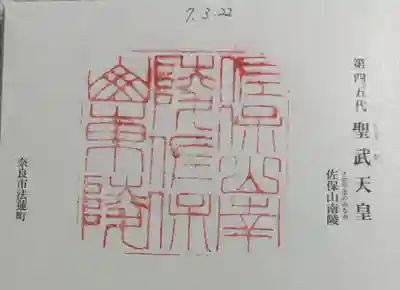 7.3.22
第四五代
聖武天皇
さほやまのみなみ
佐保山南陵
佐保山南
陵佐保
山東陵
奈良市法蓮町